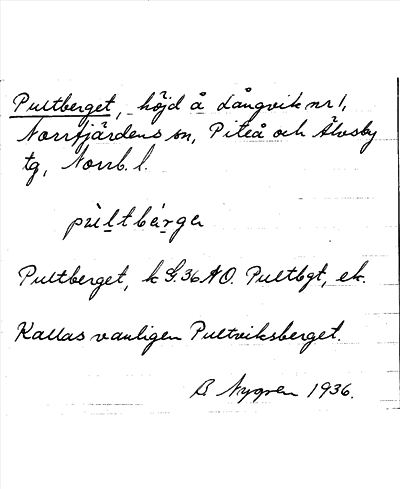 Pultberget, höjd å Långvik nr 1,
Norrfjärdens sn, Piteå och Älvsby
tg, Norrb. l.
pùltbárga
Pultberget, k G. 36 A O. Pultbgt, ek.
Kallas vanligen Pultviksberget.
B Nygren 1936.